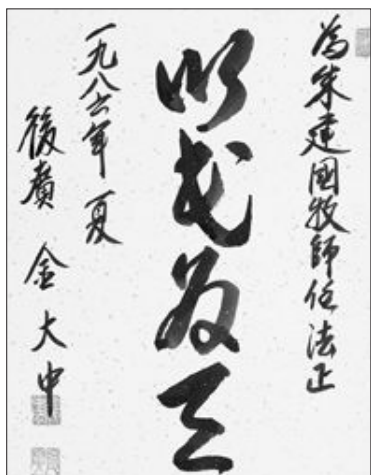 為朱建國牧師任法正
以民為天
一九八六年 夏
後廣 金大中